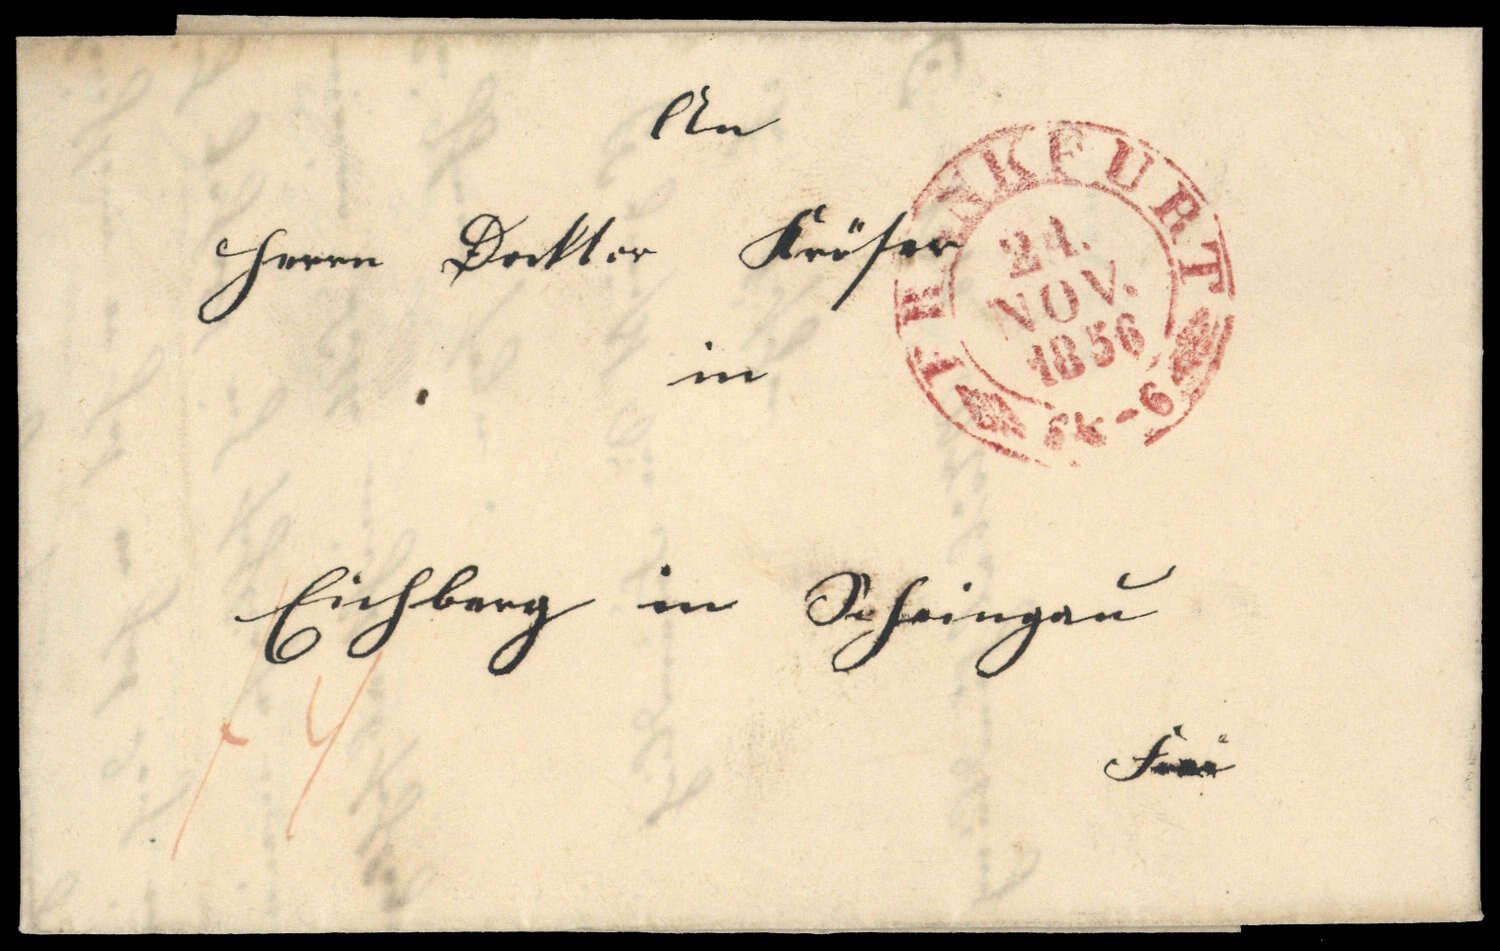 An
Herrn Dockter Kröser
in
Eichberg in Rheingau
FRANKFURT
24.
NOV.
1856